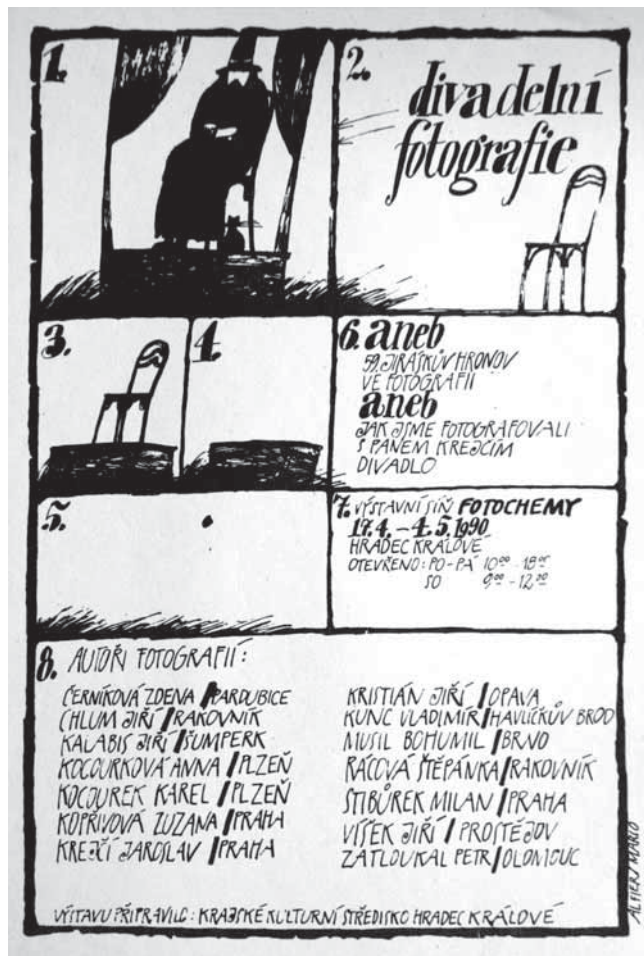 1.
2.
divadelní
fotografie
3.
4.
6. aneb
59. JIRÁSKŮV HRONOV
VE FOTOGRAFII
aneb
JAK JSME FOTOGRAFOVALI
S PANEM KREJČÍM
DIVADLO
5.
7. VÝSTAVNÍ SÍŇ FOTOCHEMY
17.4. – 4.5.1990
HRADEC KRÁLOVÉ
OTEVŘENO: PO - PÁ 10⁰⁰ - 18⁰⁰
SO 9⁰⁰ - 12⁰⁰
8. AUTOŘI FOTOGRAFIÍ:
ČERNÍKOVÁ ZDENA / PARDUBICE
CHLUM JIŘÍ / RAKOVNÍK
KALABIS JIŘÍ / ŠUMPERK
KOCOURKOVÁ ANNA / PLZEŇ
KOCOUREK KAREL / PLZEŇ
KOPŘIVOVÁ ZUZANA / PRAHA
KREJČÍ JAROSLAV / PRAHA
KRISTIÁN JIŘÍ / OPAVA
KUNC VLADIMÍR / HAVLÍČKŮV BROD
MUSIL BOHUMIL / BRNO
RÁCOVÁ ŠTĚPÁNKA / RAKOVNÍK
STIBŮREK MILAN / PRAHA
VÍŠEK JIŘÍ / PROSTĚJOV
ZATLOUKAL PETR / OLOMOUC
VÝSTAVU PŘIPRAVILO: KRAJSKÉ KULTURNÍ STŘEDISKO HRADEC KRÁLOVÉ
ALFIERI MARIO